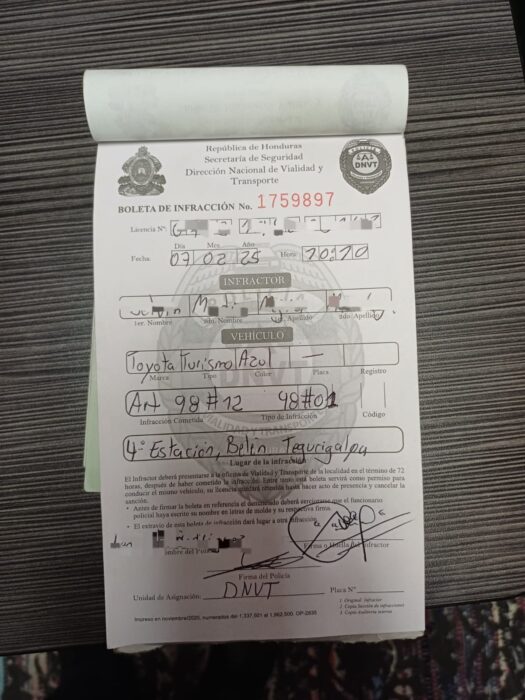 República de Honduras
Secretaría de Seguridad
Dirección Nacional de Vialidad y
Transporte
POLICIA
DNVT
BOLETA DE INFRACCIÓN No. 1759897
Licencia Nº:
Día Mes Año
Fecha: 07 02 25 Hora: 10:10
INFRACTOR
1er. Nombre 2do. Nombre 1er. Apellido 2do. Apellido
VEHÍCULO
Toyota Turismo Azul —
Marca Tipo Color Placa Registro
Art 98#12 98#01
Infracción Cometida Tipo de Infracción Código
4° Estacion, Belén Tegucigalpa
Lugar de la infracción
El Infractor deberá presentarse a la oficina de Vialidad y Transporte de la localidad en el término de 72
horas, después de haber cometido la infracción. Entre tanto esta boleta servirá como permiso para
conducir el mismo vehículo, su licencia quedará retenida hasta hacer acto de presencia y cancelar la
sanción.
• Antes de firmar la boleta en referencia el destinado deberá cerciorarse que el funcionario
policial haya escrito su nombre en letras de molde y su respectiva firma.
• El extravío de esta boleta de infracción dará lugar a otra infracción.
Nombre del Policía Firma o Huella del Infractor
Firma del Policía
Unidad de Asignación: DNVT Placa Nº
1 Original: infractor
2 Copia Sección de infracciones
3 Copia Auditoría interna
Impreso en noviembre/2020, numerados del 1,337,501 al 1,862,500 OP-2835